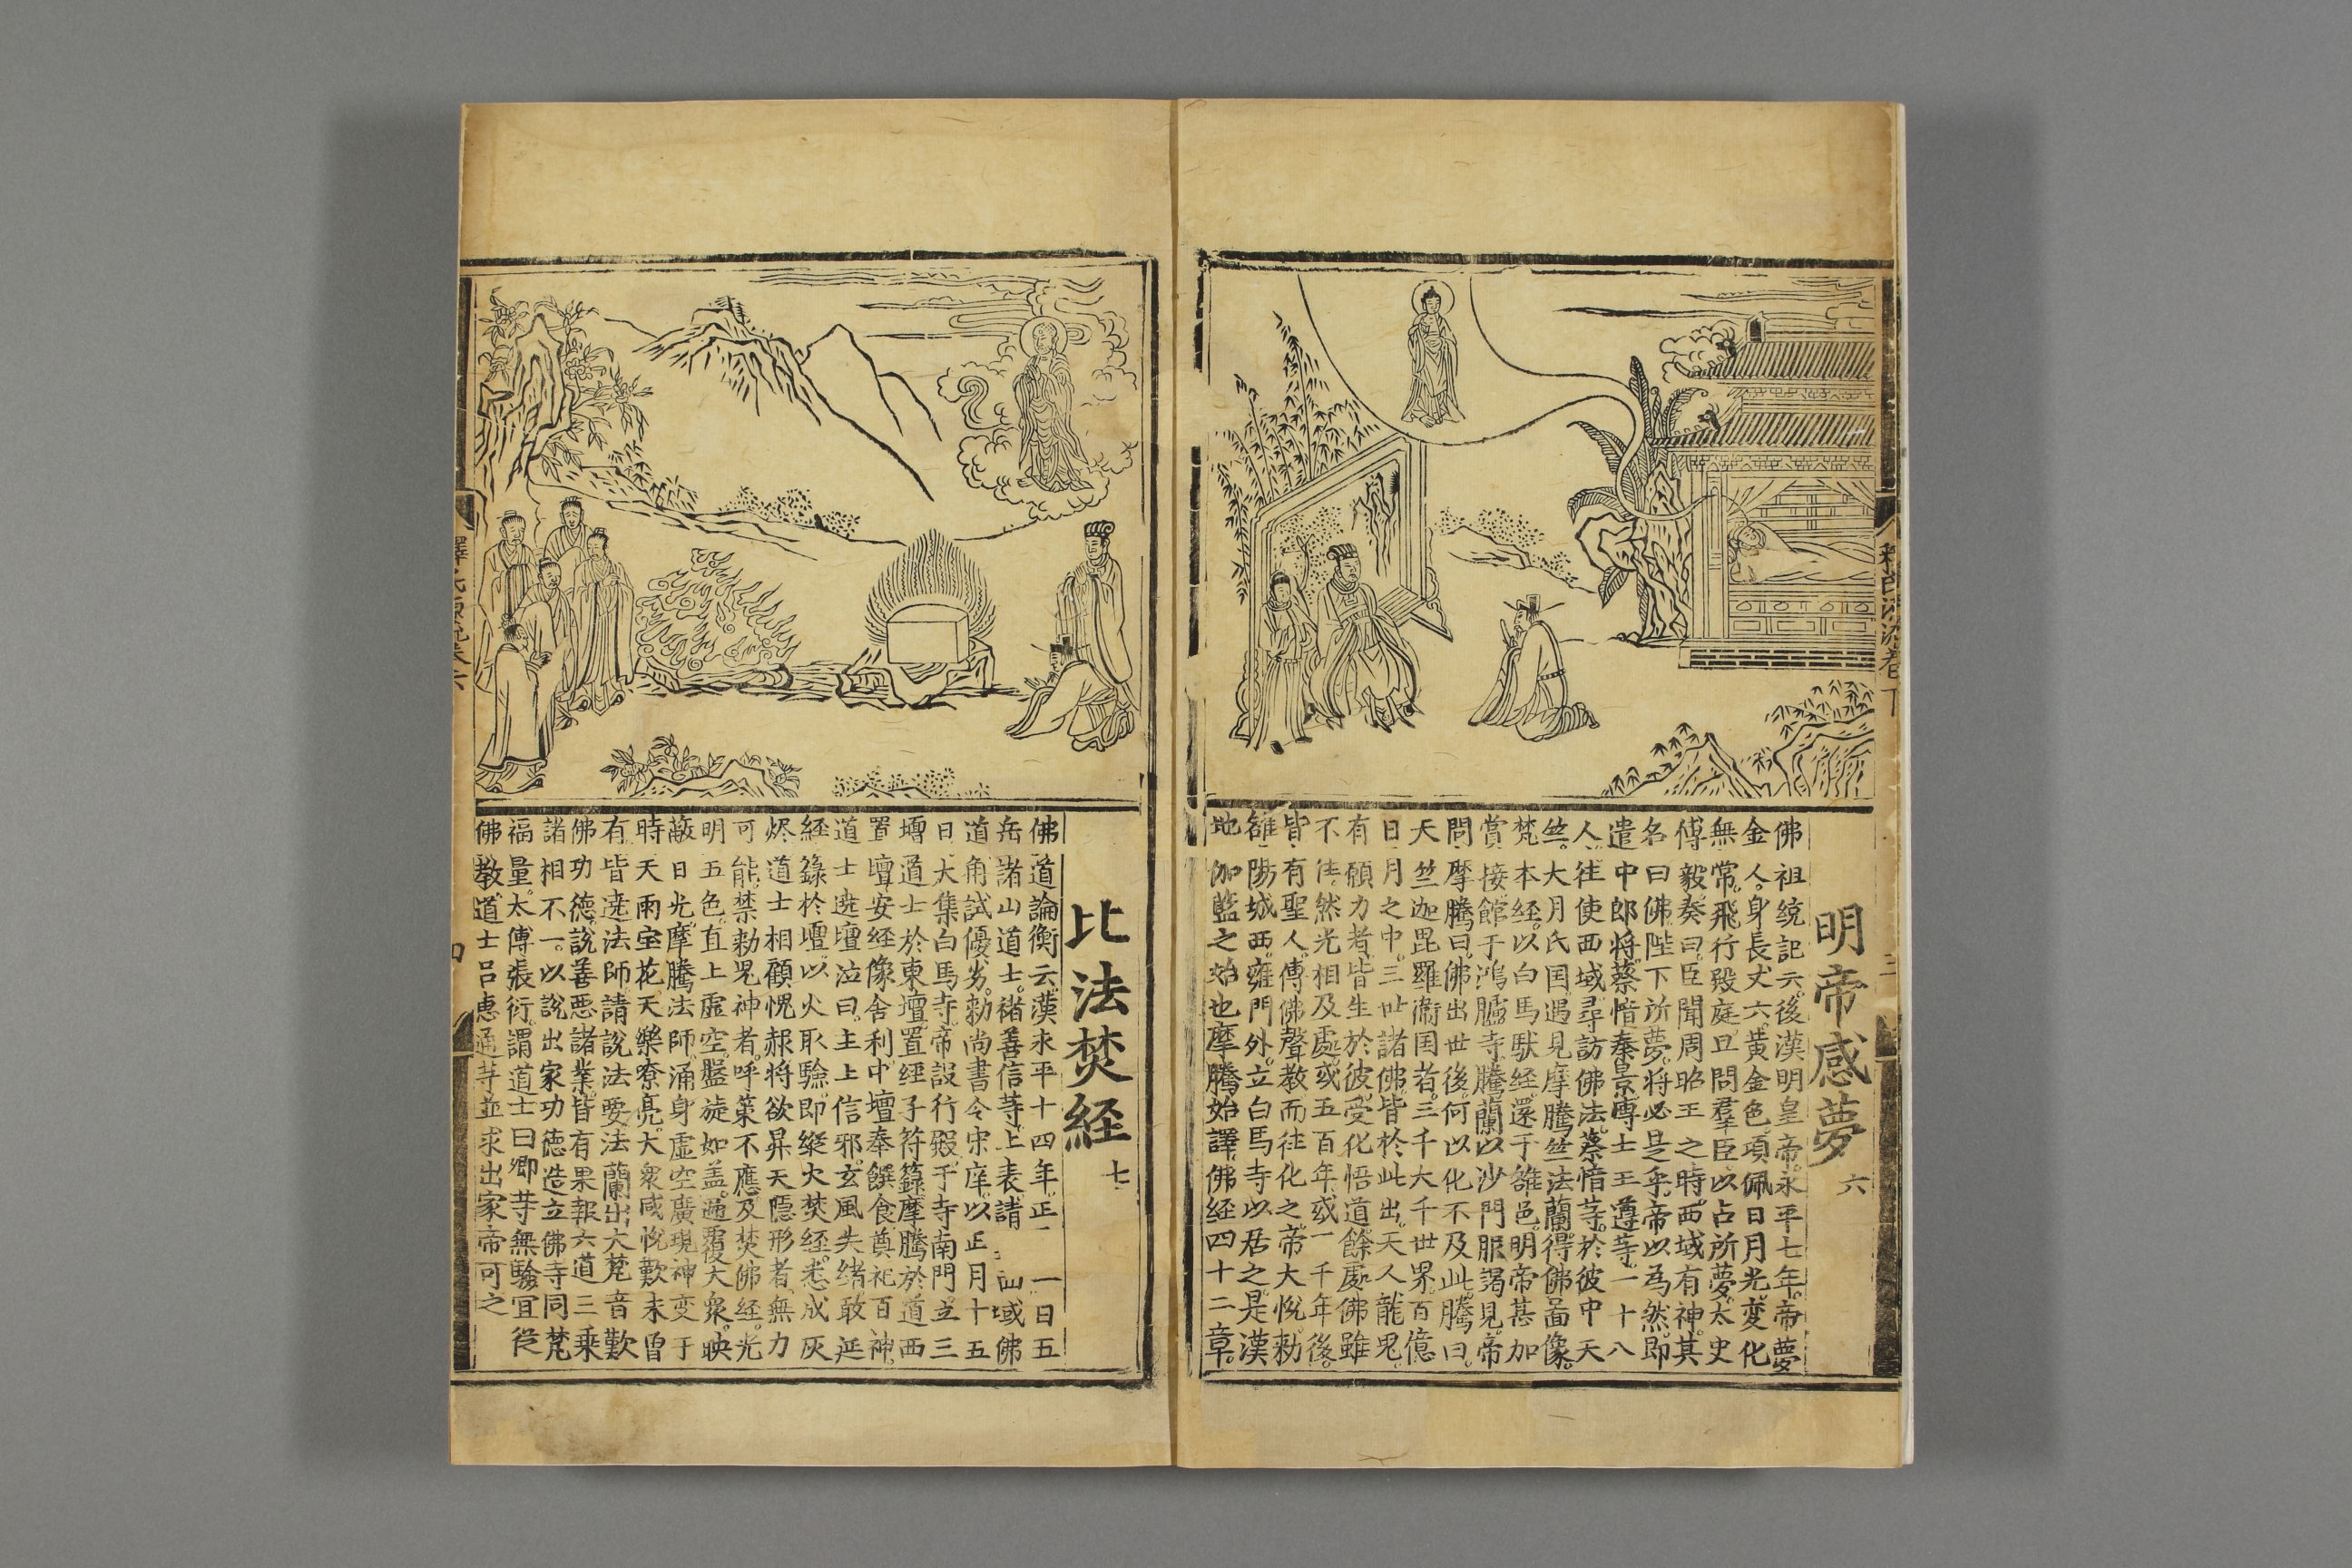 明帝感夢 六
佛祖統記云。後漢明皇帝。永平七年。帝夢
金人。身長丈六。黃金色。項佩日月光。变化
無常。飛行殿庭。旦問羣臣。以占所夢。太史
傅毅奏曰。臣聞周昭王之時。西域有神。其
名曰佛。陛下所夢。将必是乎。帝以為然。即
遣中郎將蔡愔秦景博士王遵等。一十八
人。往使西域。尋訪佛法。蔡愔等。於彼中天
竺。大月氏国。遇見摩騰竺法蘭。得佛畐像。
梵本経。以白馬馱経。還于雒邑。明帝甚加
賞接。館于鴻臚寺。騰蘭以沙門服謁見。帝
問摩騰曰。佛出世後。何以化不及此。騰曰。
天竺迦毘羅衛国者。三千大千世界。百億
日月之中。三世諸佛。皆於此出。天人龍鬼
有願力者。皆生於彼。受化悟道。餘處佛雖
不徃。然光相及處。或五百年。或一千年後。
皆有聖人。傳佛聲教。而往化之。帝大悅。勅
雒陽城西。雍門外。立白馬寺以居之。是漢
地伽藍之始也。摩騰始譯佛経四十二章。
釋氏源流卷下
比法焚経 七
佛道論衡云。漢永平十四年。正一日五
岳諸山道士。褚善信等。上表請域佛
道角試優劣。勅尚書令宋庠。以正月十五
日。大集白馬寺。帝設行殿。于寺南門。立三
壇。道士於東壇。置経子符籙。摩騰於道西
置壇。安経像舍利。中壇奉饌食。奠祀百神。
道士遶壇泣曰。主上信邪。玄風失緒。敢延
経籙於壇。以火取驗。即縱火焚経。悉成灰
烬。道士相顧愧赧。将欲昇天隱形者。無力
可能。禁勅鬼神者。呼策不應。及焚佛経。光
明五色。直上虛空。盤旋如盖。遍覆大衆。映
蔽日光。摩騰法師。涌身虛空。廣現神变。于
時天雨宝花。天樂嘹亮。大衆咸悅。歎未曾
有。皆遶法師。請說法要。法蘭出大梵音。歎
佛功德。說善惡諸業。皆有果報。六道三乗
諸相不一。以說出家功德。造立佛寺。同梵
福量。太傅張衍。謂道士曰。卿等無驗。宜從
佛教。道士呂惠通等。並求出家。帝可之